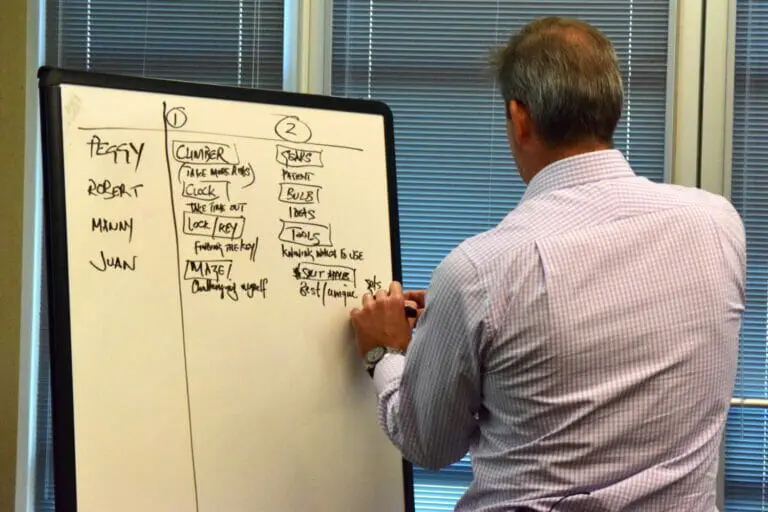 ① ②
PEGGY CLIMBER
(TAKE MORE RISKS) PATIENT
ROBERT CLOCK BULB
TAKE TIME OUT IDEAS
MANNY LOCK/KEY TOOLS
FINDING THE KEY KNOWING WHICH TO USE
JUAN MAZE
Challenging myself Best/unique